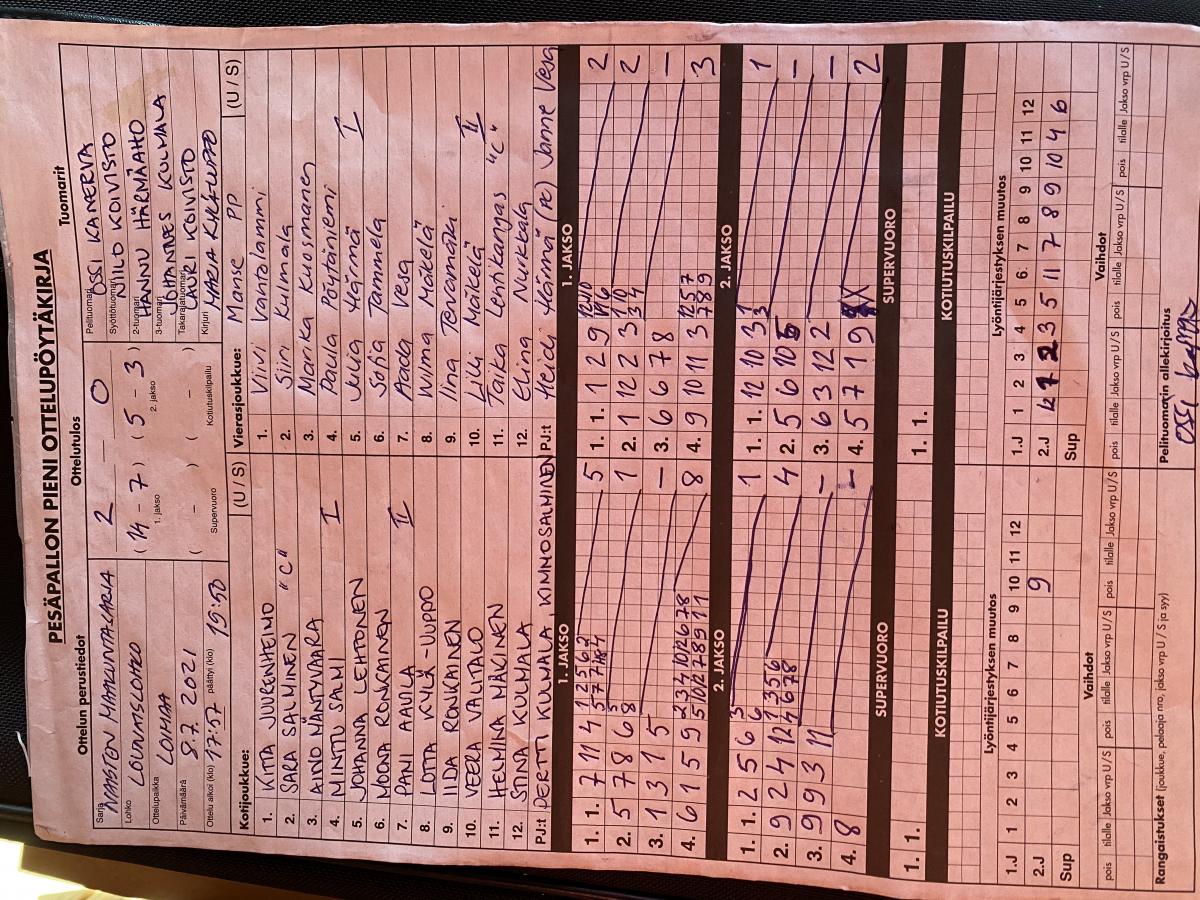 PESÄPALLON PIENI OTTELUPÖYTÄKIRJA
Ottelun perustiedot
Sarja NAISTEN MAAKUNTASARJA
Lohko LOUNAISLOHKO
Ottelupaikka LOIMAA
Päivämäärä 8.7.2021
Ottelu alkoi (klo) 17:57 päättyi (klo) 19:50
Ottelutulos
2 – 0
(14 - 7) (5 - 3)
1. jakso 2. jakso
( - ) ( - )
Supervuoro Kotiutuskilpailu
Tuomarit
Pelituomari OSSI KANERVA
Syöttötuomari NIILO KOIVISTO
2-tuomari HANNU HÄRMÄAHO
3-tuomari JOHANNES KULMALA
Takarajatuomari JARI KOIVISTO
Kirjuri MARIA KYLÄ-UPPO
Kotijoukkue: (U / S)
1. KITTA JUURENHEIMO
2. SARA SALMINEN "C"
3. AINO MÄNTYVAARA
4. MINTTU SALMI I
5. JOHANNA LEHTONEN
6. MOONA RONKAINEN
7. PANI AAVILA II
8. LOTTA KYLÄ-UPPO
9. IIDA RONKAINEN
10. VEERA VALITALO
11. HELMINA MÄCINEN
12. STINA KULMALA
PJ:t PERTTI KULMALA, KIMMO SALMINEN
Vierasjoukkue: Manse PP (U / S)
1. Vivi Vantalammi
2. Siiri Kulmala
3. Marika Kuosmanen
4. Paula Pöytäniemi
5. Julia Härmä I
6. Sofia Tammela
7. Aada Vesa
8. Wilma Mäkelä
9. Iina Tervamäki
10. Lili Mäkelä II
11. Taika Lentikangas "C"
12. Elina Nurkkala
PJ:t Heidi Härmä (pe) Janne Vesa
1. JAKSO
1. 1. 7 11 4 5
2. 5 7 8 6 8 1
3. 1 3 1 5 –
4. 6 1 5 9 8
1. JAKSO
1. 1. 1 2 9 2
2. 1 12 2 3 2
3. 6 6 7 8 –
4. 9 10 11 3 3
2. JAKSO
1. 1. 2 5 6 1
2. 9 2 4 12 4
3. 9 9 3 11 –
4. 8 –
2. JAKSO
1. 1. 12 10 3 1
2. 5 6 10 –
3. 6 3 12 2 –
4. 5 7 1 9 2
SUPERVUORO
1. 1.
SUPERVUORO
1. 1.
KOTIUTUSKILPAILU
KOTIUTUSKILPAILU
Lyöntijärjestyksen muutos
1.J 1 2 3 4 5 6 7 8 9 10 11 12
2.J 9
Sup
Lyöntijärjestyksen muutos
1.J 1 2 3 4 5 6 7 8 9 10 11 12
2.J 1 2 3 5 11 7 8 9 10 4 6
Sup
Vaihdot
pois tilalle Jakso vrp U / S pois tilalle Jakso vrp U / S pois tilalle Jakso vrp U / S
Vaihdot
pois tilalle Jakso vrp U / S pois tilalle Jakso vrp U / S pois tilalle Jakso vrp U / S
Rangaistukset (joukkue, pelaaja nro, jakso vrp U / S ja syy)
Pelituomarin allekirjoitus